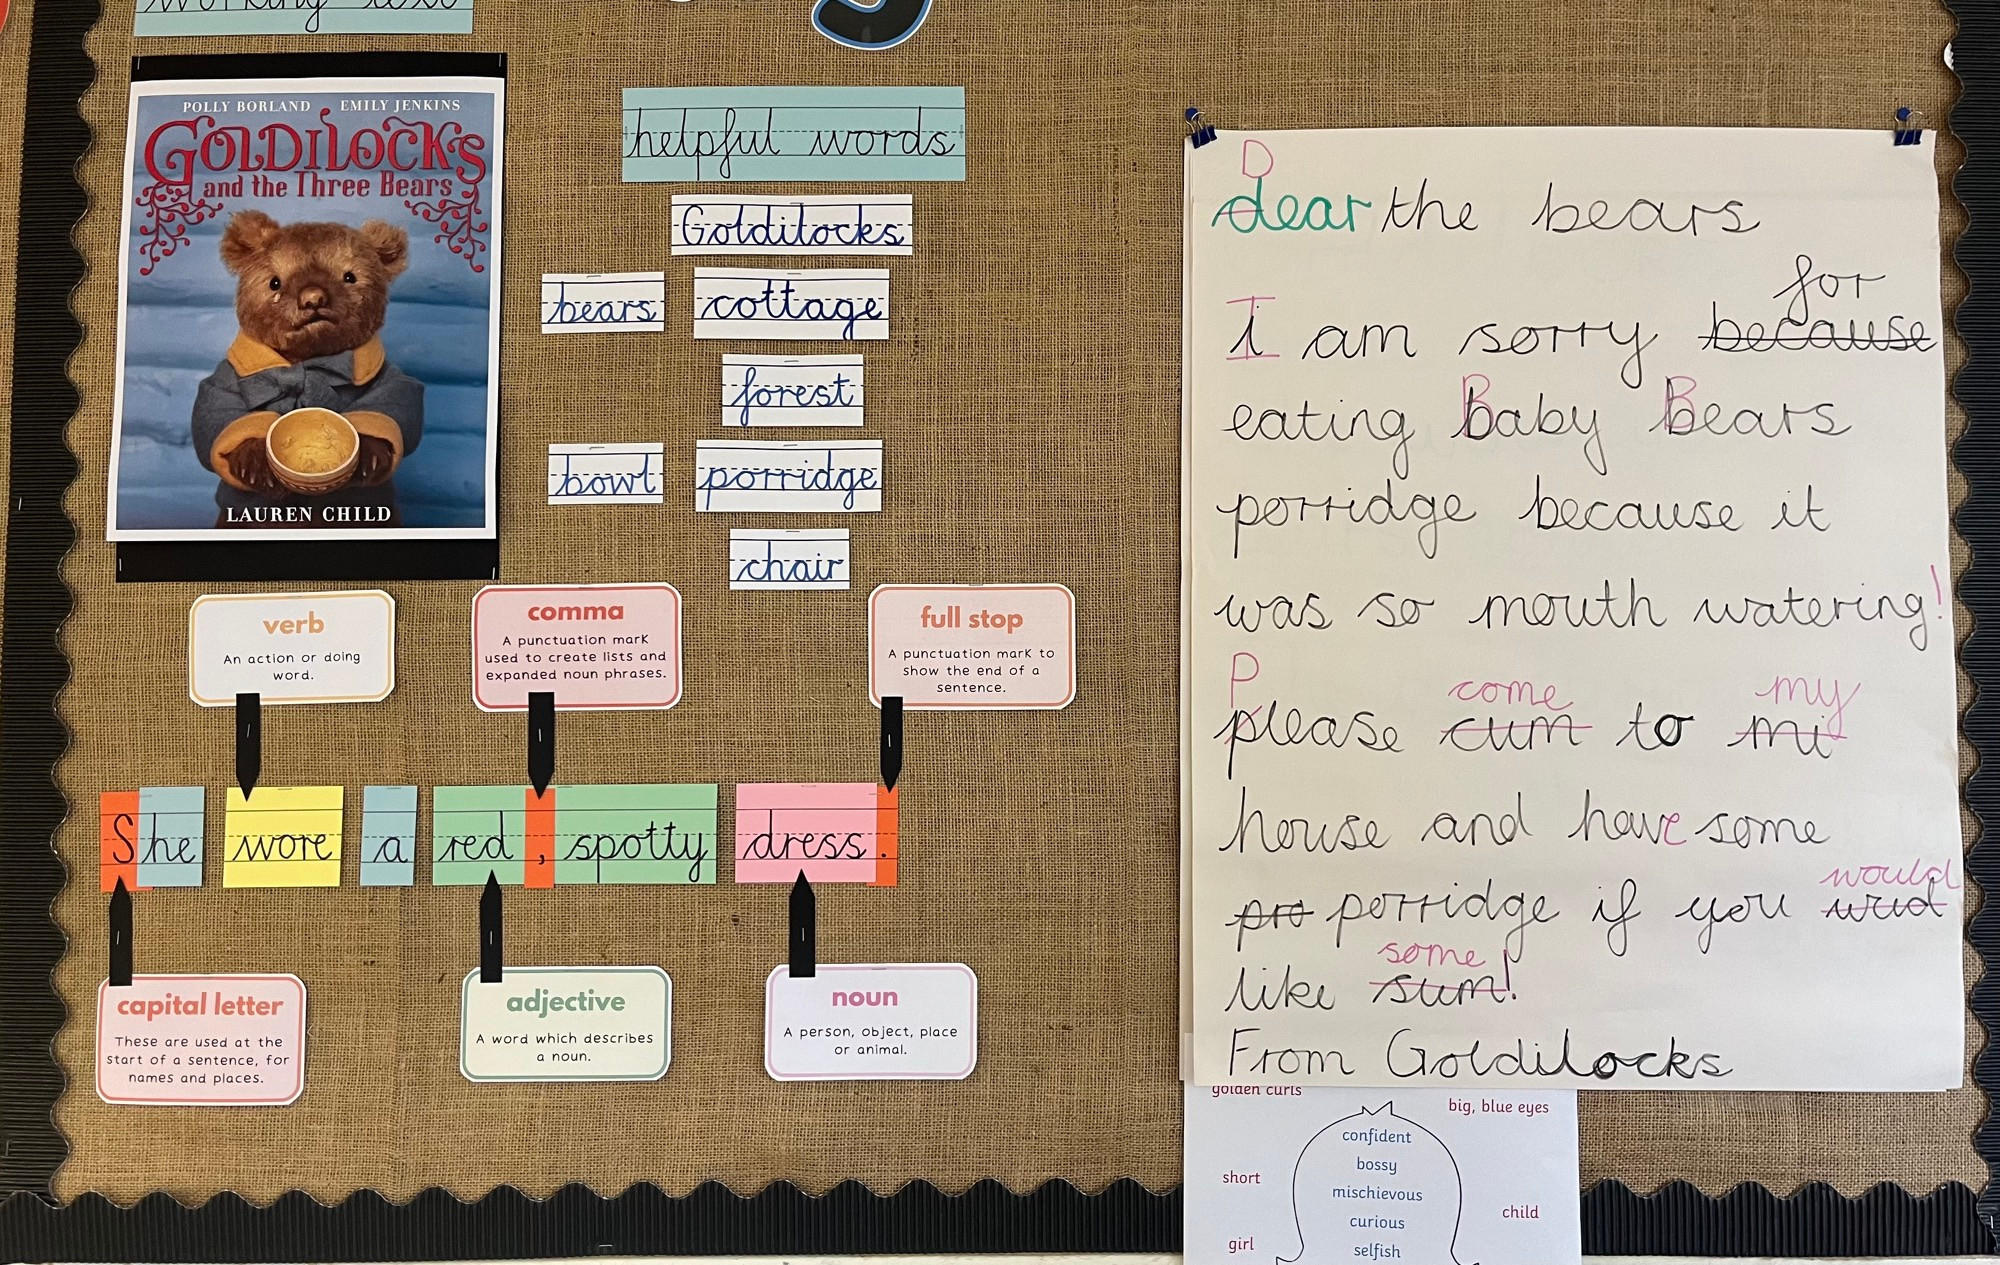 working text
POLLY BORLAND EMILY JENKINS
GOLDILOCKS
and the Three Bears
LAUREN CHILD
helpful words
Goldilocks
bears cottage
forest
bowl porridge
chair
verb
An action or doing
word.
comma
A punctuation mark
used to create lists and
expanded noun phrases.
full stop
A punctuation mark to
show the end of a
sentence.
She wore a red, spotty dress.
capital letter
These are used at the
start of a sentence, for
names and places.
adjective
A word which describes
a noun.
noun
A person, object, place
or animal.
D
dear the bears
for
I am sorry because
eating Baby Bears
porridge because it
was so mouth watering!
P come my
please cum to mi
house and have some
would
pro porridge if you wud
some
like sum!
From Goldilocks
golden curls
big, blue eyes
confident
bossy
short
mischievous
curious
child
girl
selfish